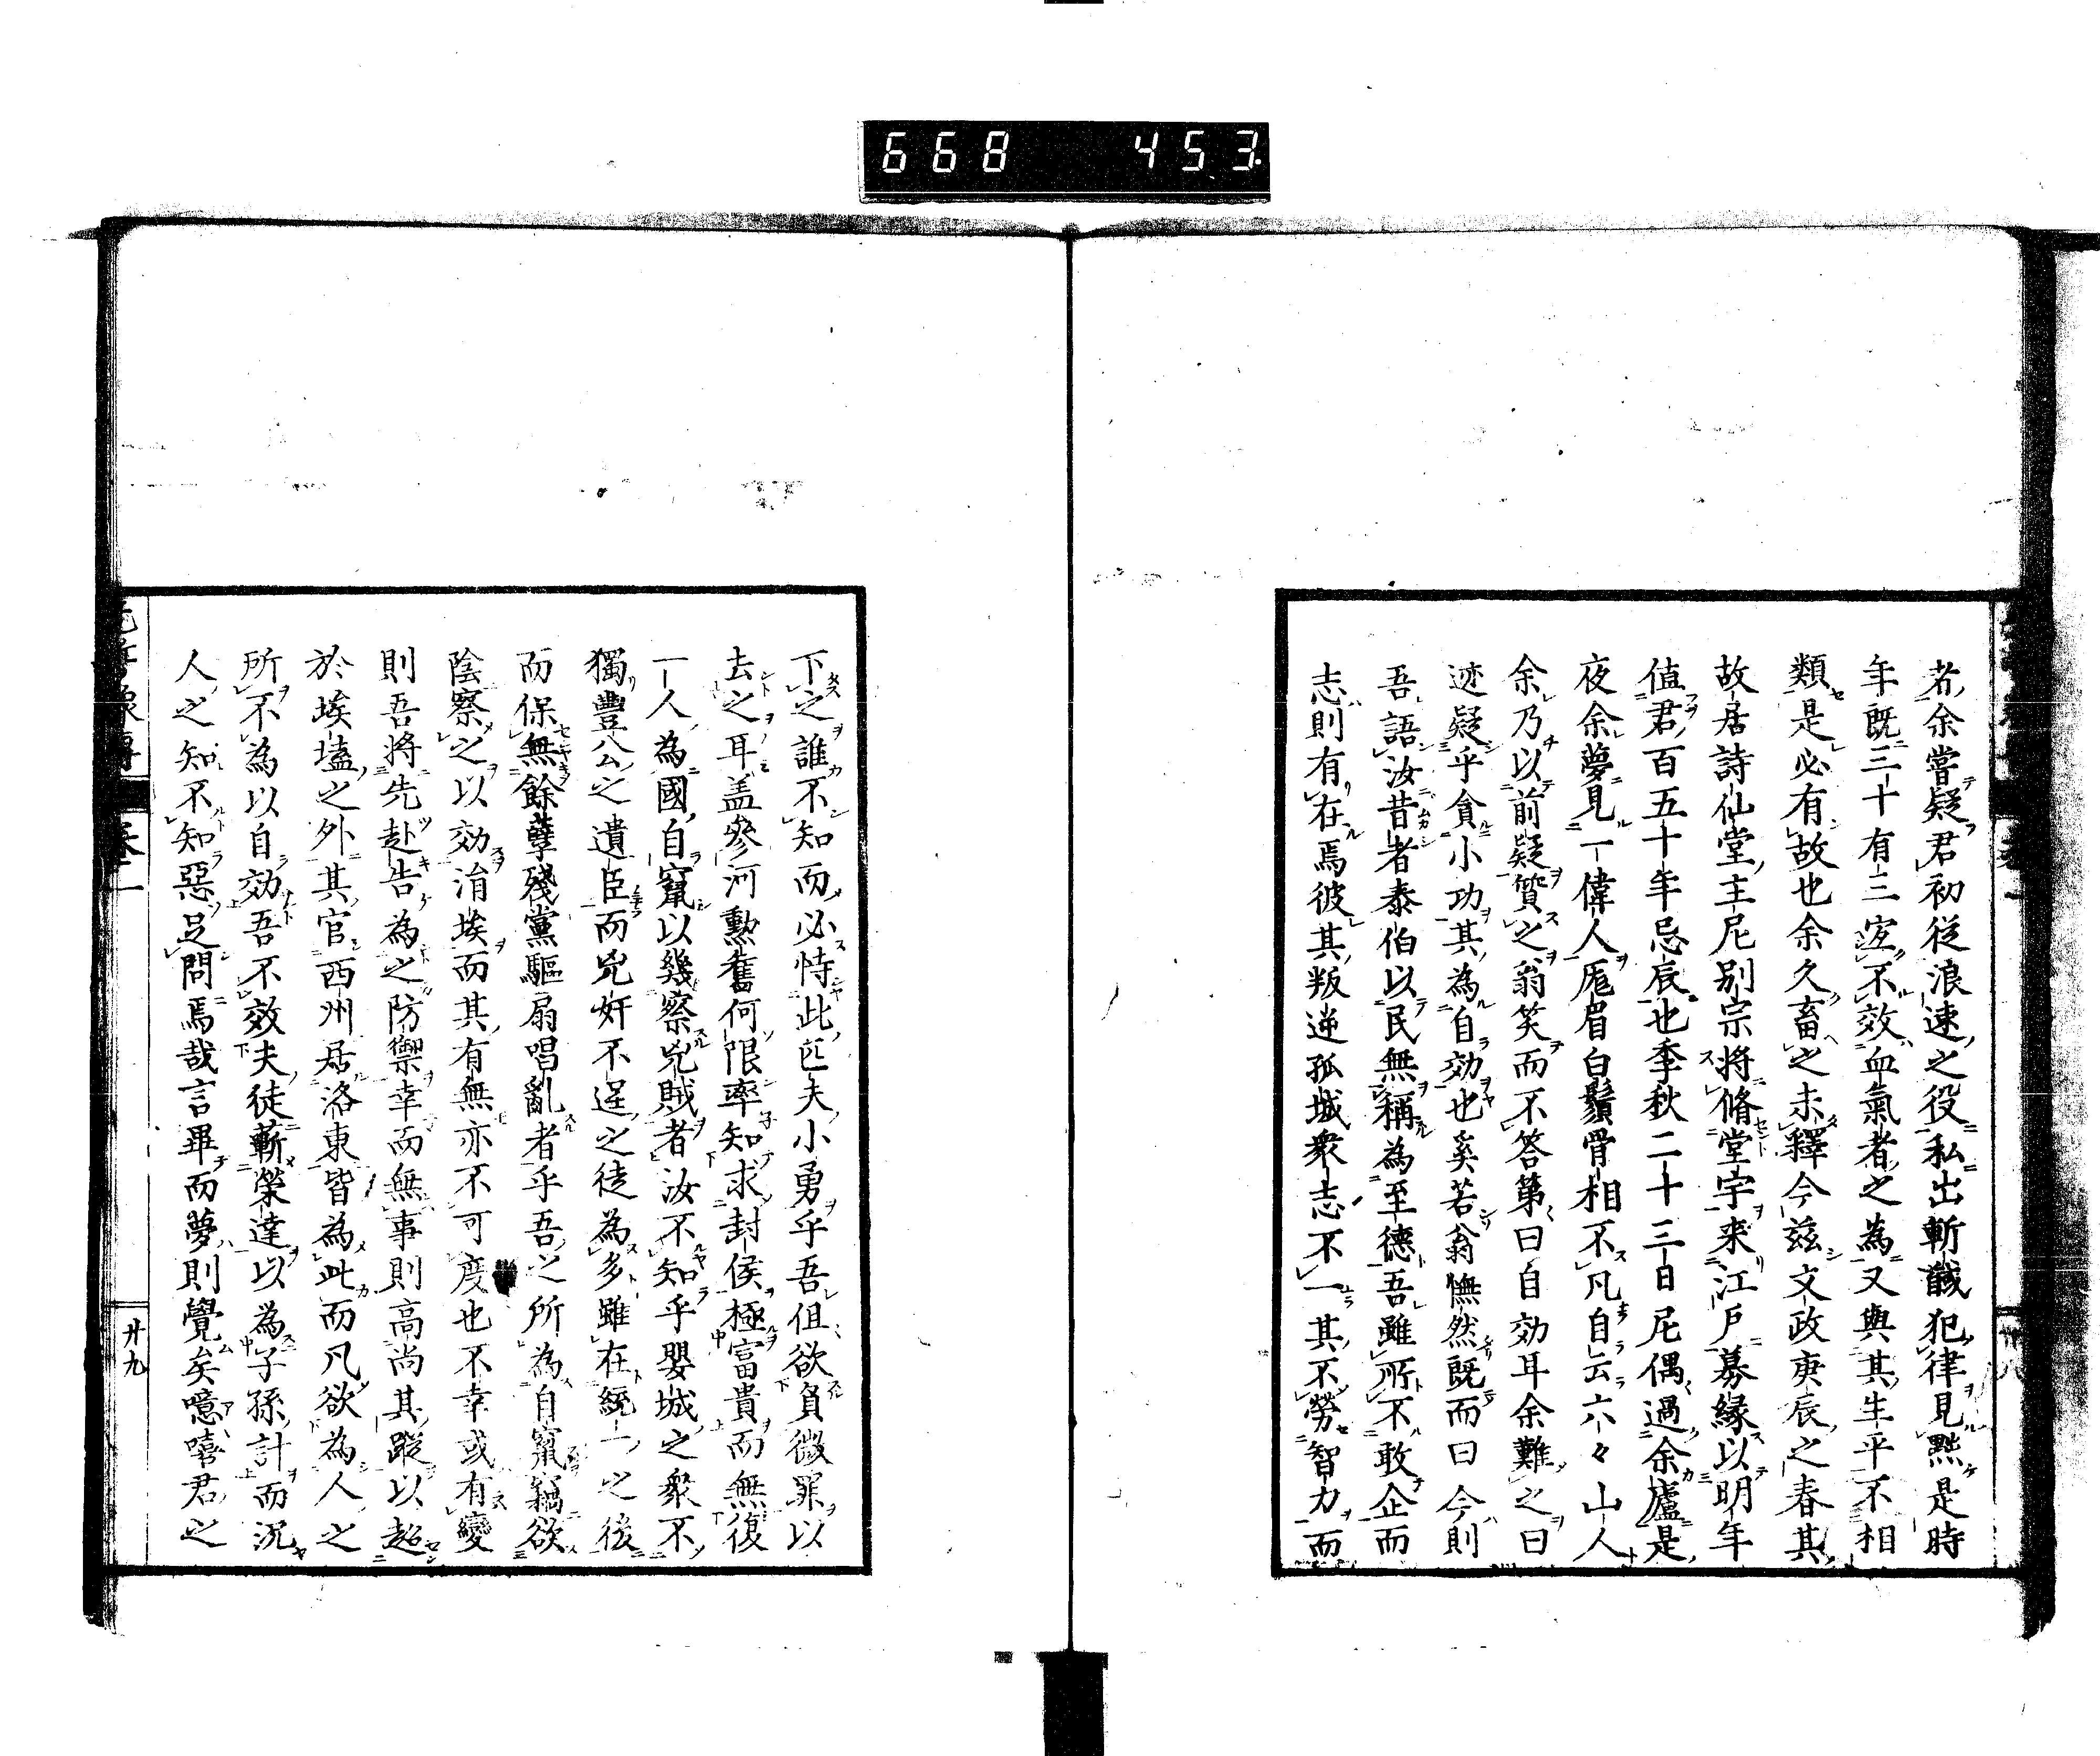 668 453
者余嘗疑君初従浪速之役私出斬馘犯律見黜是時
年既三十有三寔不效血氣者之為又與其生平不相
類是必有故也余久畜之未釋今茲文政庚辰之春其
故居詩仙堂主尼別宗将脩堂宇来江戸募縁以明年
値君百五十年忌辰也季秋二十三日尼偶過余廬是
夜余夢見一偉人厖眉白鬚骨相不凡自云六々山人
余乃以前疑質之翁笑而不答第曰自効耳余難之曰
迹疑乎貪小功其為自効也奚若翁憮然既而曰今則
吾語汝昔者泰伯以民無稱為至德吾雖所不敢企而
志則有在焉彼其叛逆孤城衆志不一其不勞智力而
下之誰不知而必恃此匹夫小勇乎吾但欲負微罪以
去之耳盖參河勲舊何限率知求封侯極富貴而無復
一人為國自竄以幾察兇賊者汝不知乎嬰城之衆不
獨豐公之遺臣而兇奸不逞之徒為多雖在統一之後
而保無餘孽殘黨驅扇唱亂者乎吾之所為自竄竊欲
陰察之以効涓埃而其有無亦不可度也不幸或有變
則吾将先赴告為之防禦幸而無事則高尚其蹤以超
於埃壒之外其官西州居洛東皆為此而凡欲為人之
所不為以自効吾不效夫徒蘄榮達以為子孫計而沉
人之知不知惡足問焉哉言畢而夢則覺矣噫嘻君之
卷二
廿九